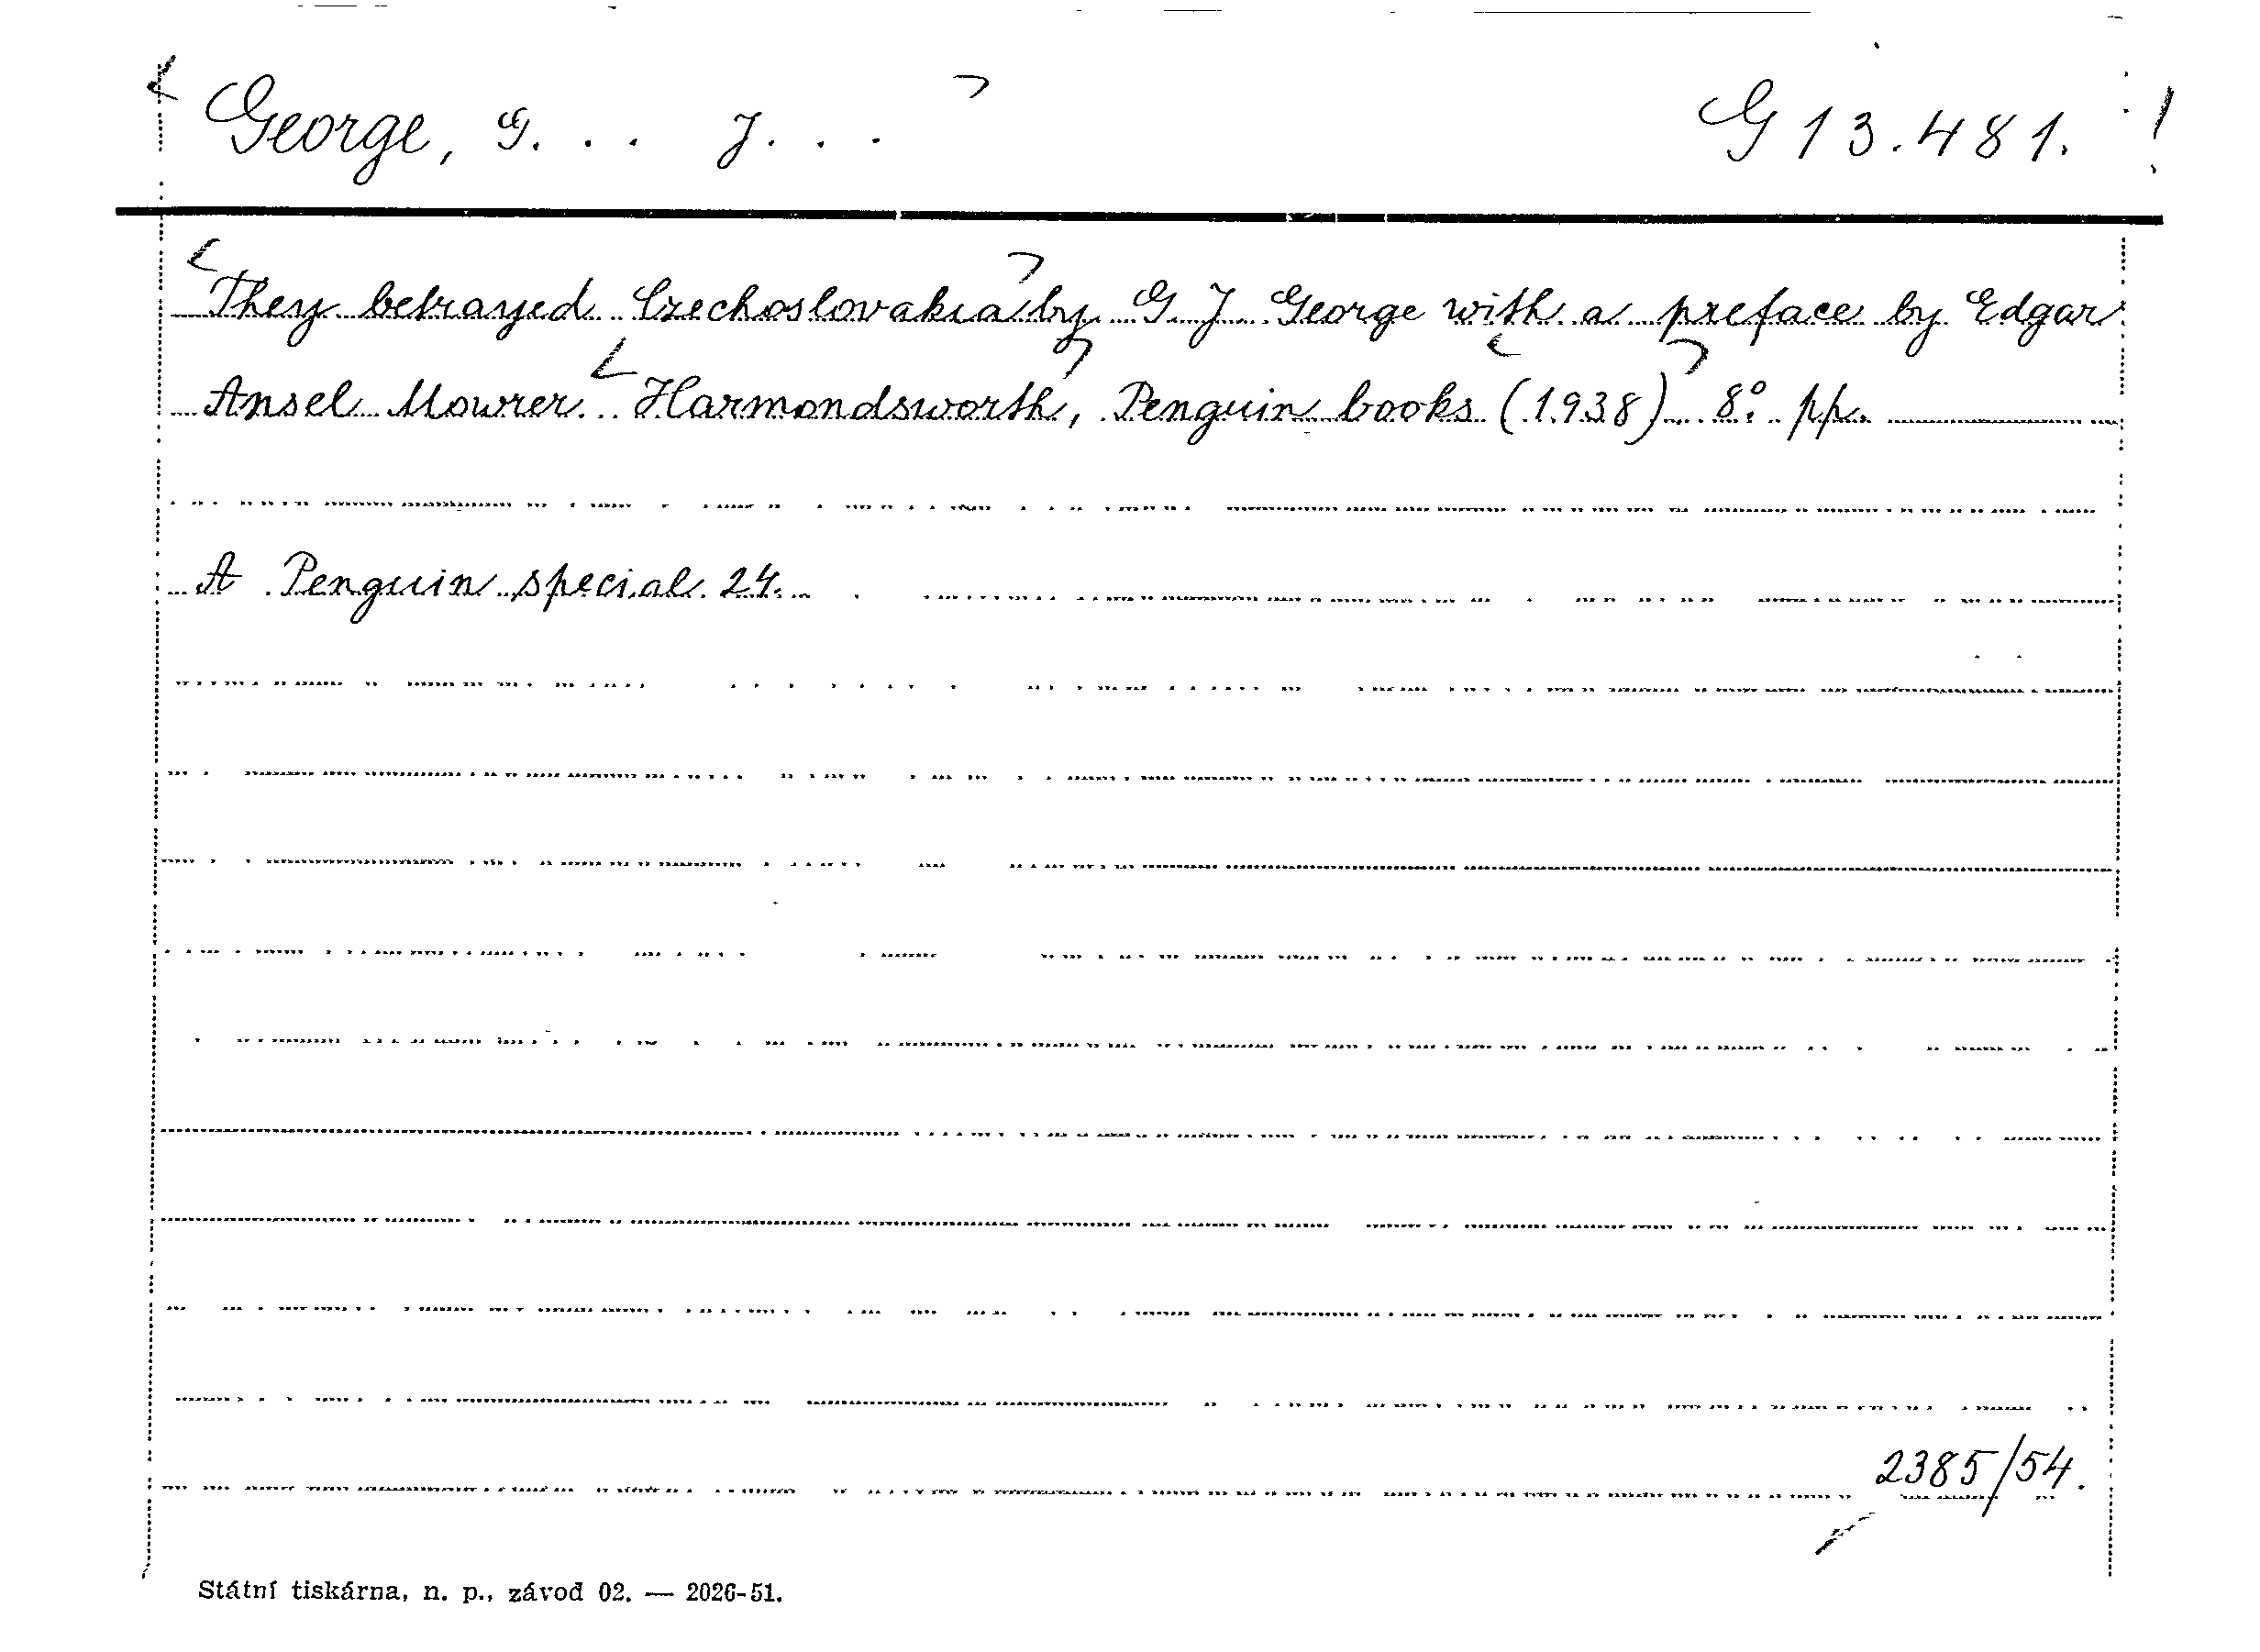 George, G. . . J. . . G 13.481.
They betrayed Czechoslovakia by G. J. George with a preface by Edgar
Ansel Mowrer. Harmondsworth, Penguin books (1938) 8° pp.
A Penguin special 24.
2385/54.
Státní tiskárna, n. p., závod 02. — 2026-51.